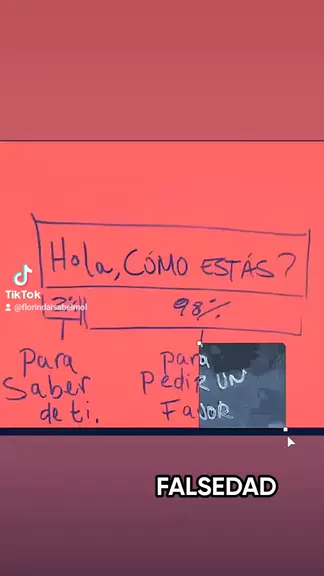 Hola, CÓMO ESTÁS?
TikTok
@florindaisabelmol
2%
98%
Para
Saber
de ti.
para
Pedir UN
Favor
FALSEDAD